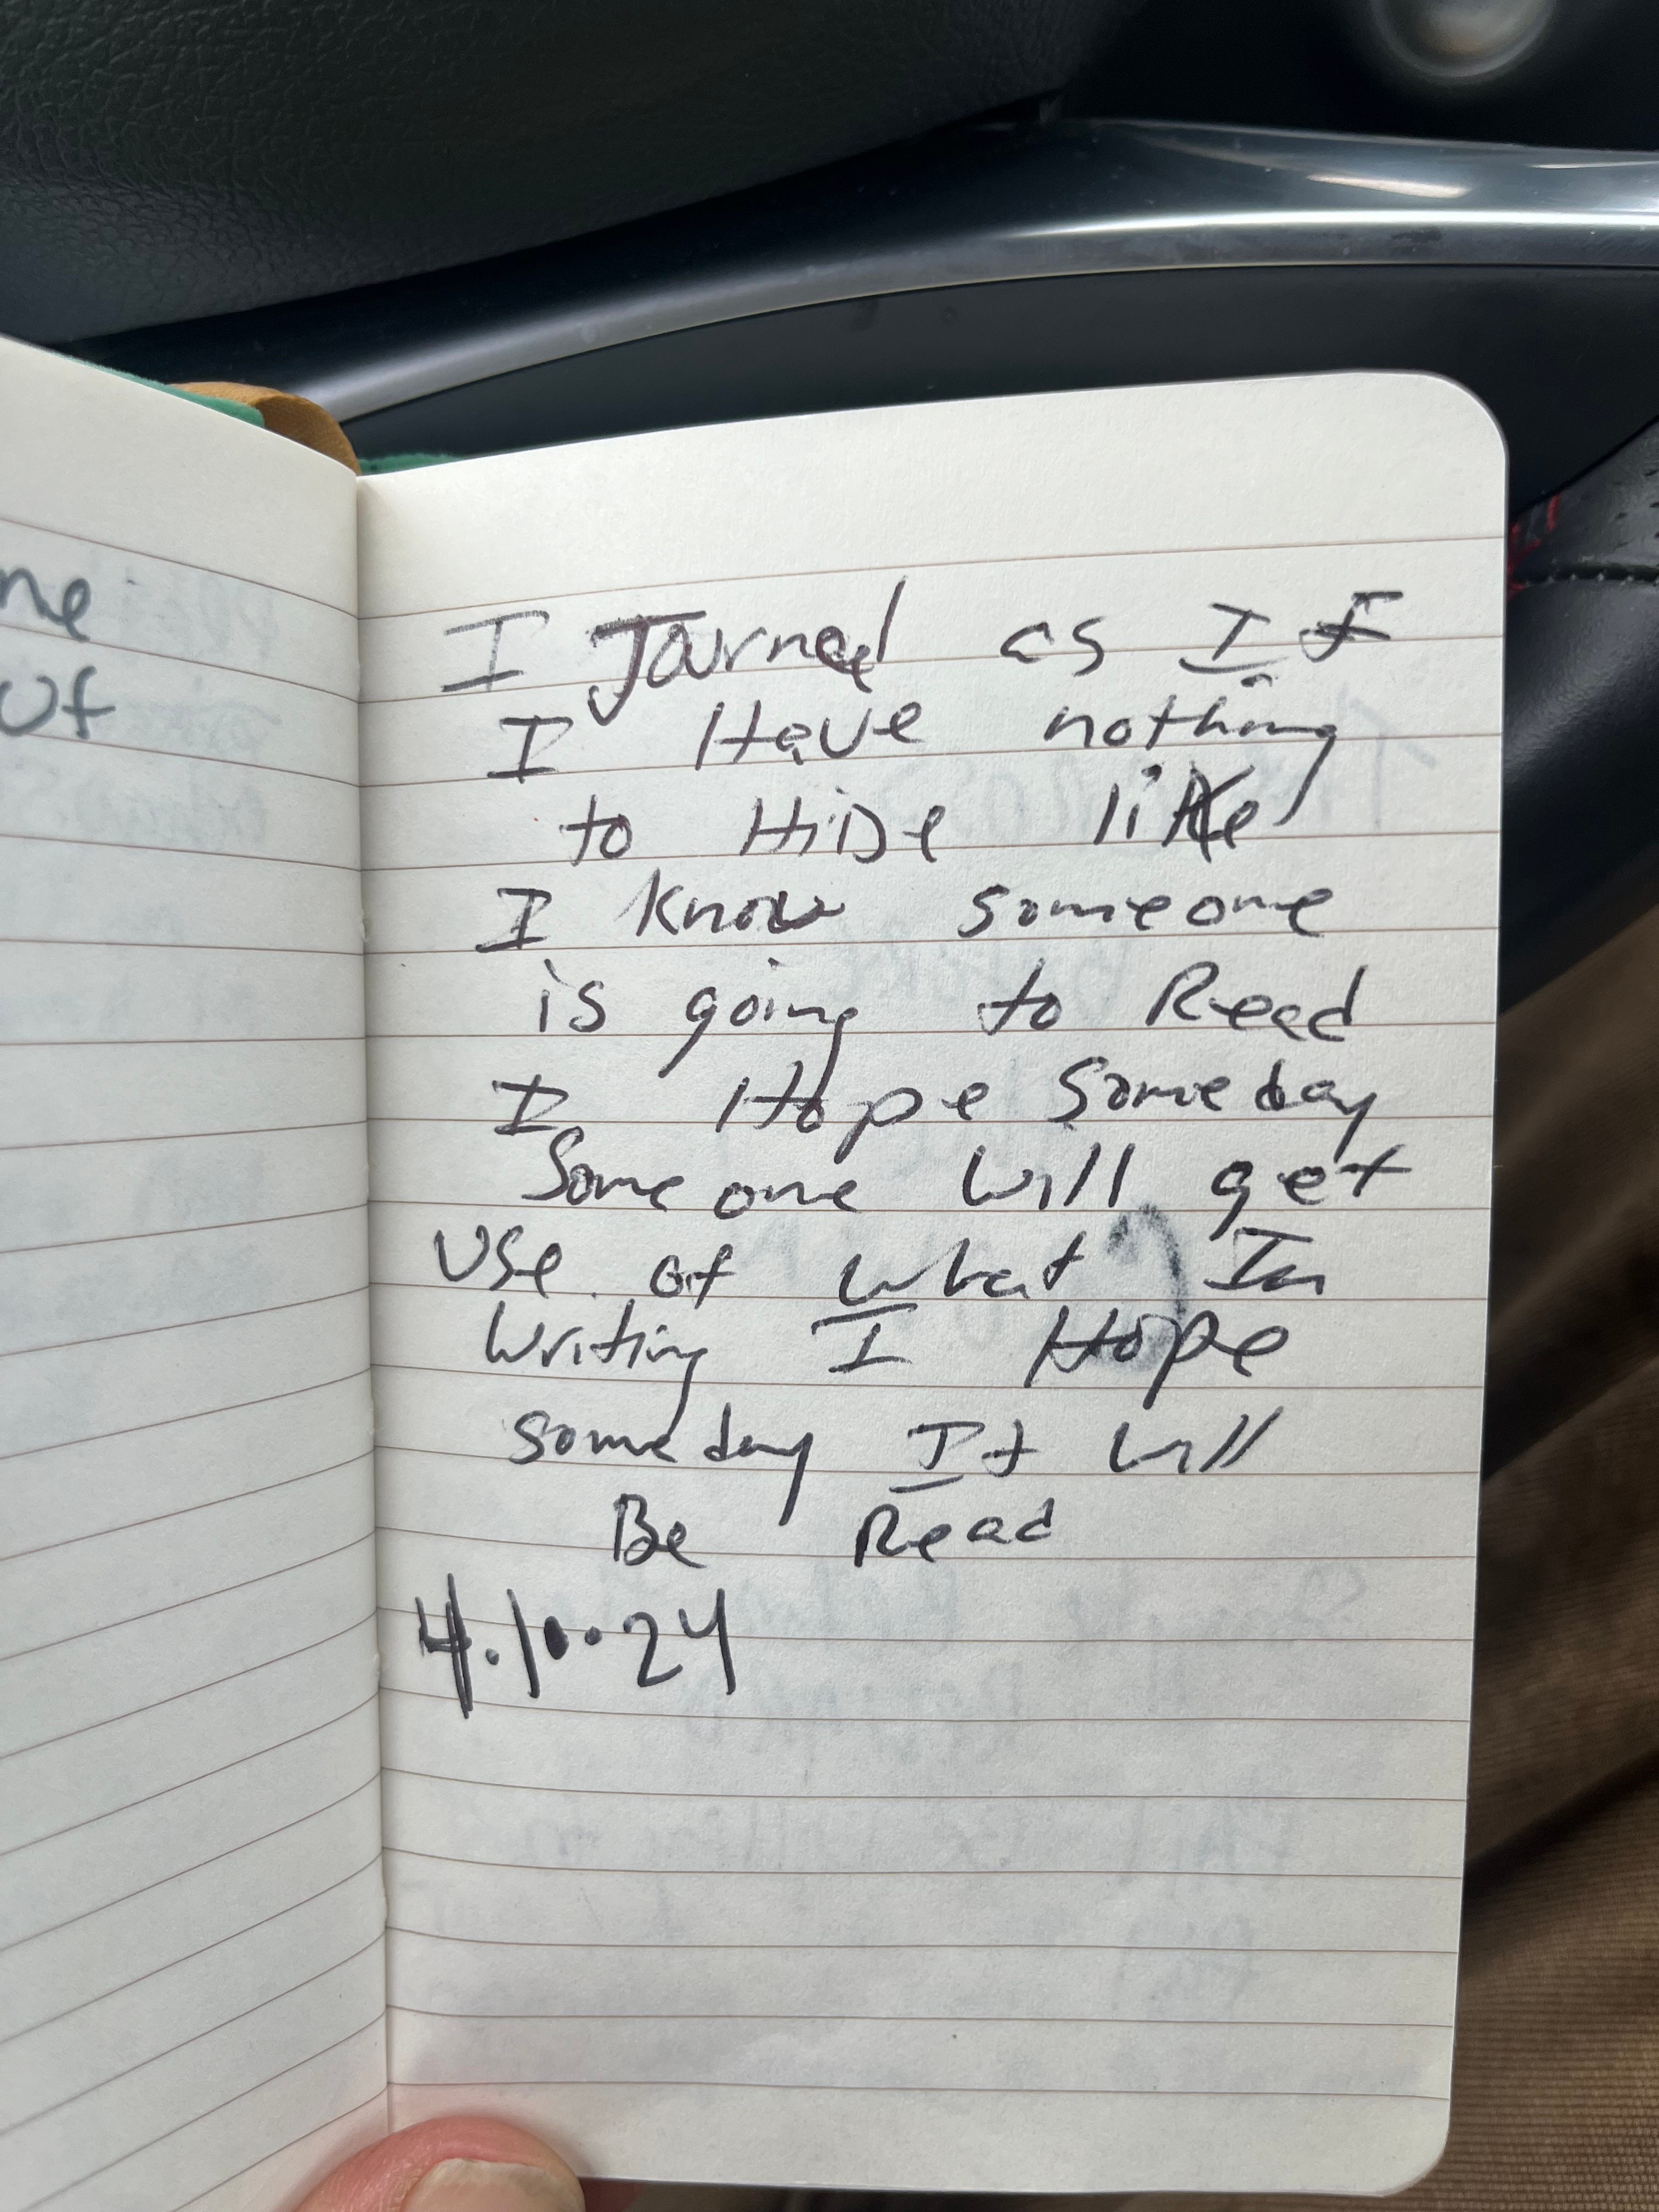 ne
Of
I Journal as If
I Have nothing
to Hide like
I know someone
is going to Read
I Hope Someday
Someone will get
Use of what Im
Writing I Hope
someday It will
Be Read
4.10.24